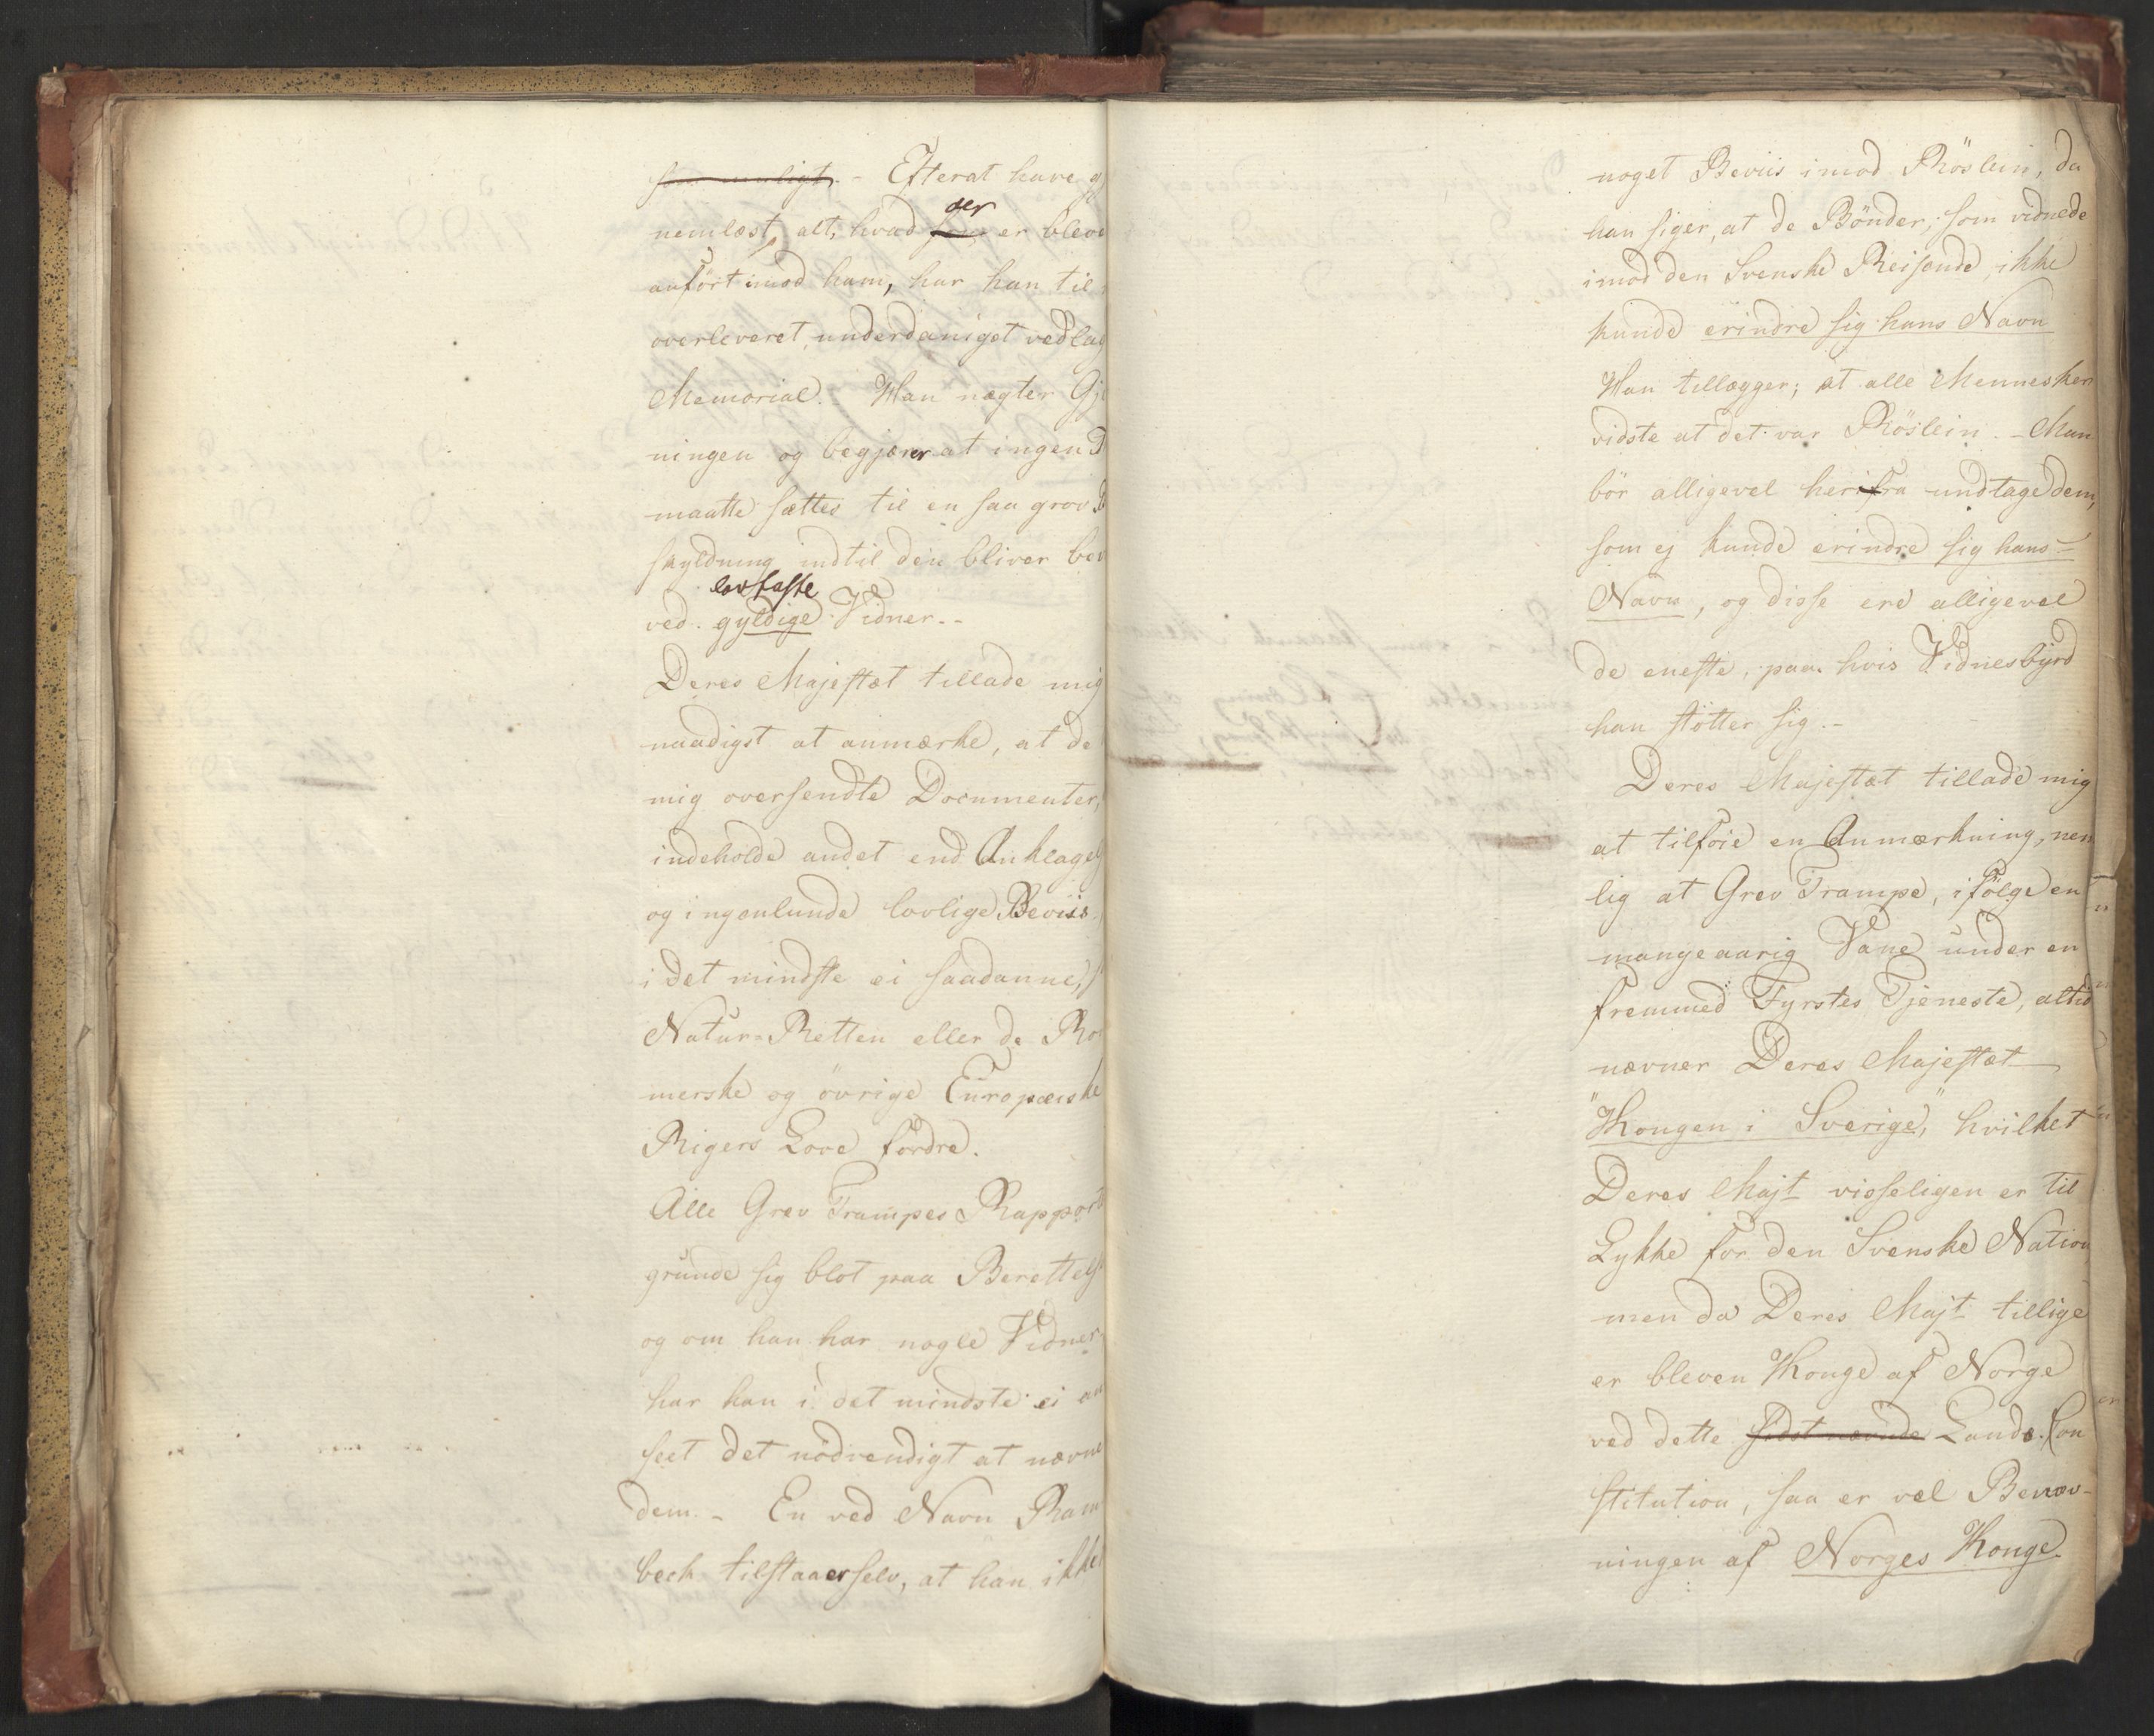 som muligt. - Efterat have g
der
nemlæst alt, hvad som er bleve
anført imod ham, har han til
overleveret underdanigst vedlag
Memorial. - Han nægter Gj
ningen og begjærer at ingen
maatte sættes til en saa grov
skyldning indtil den bliver bev
lovfaste
ved gyldige Vidner. -
Deres Majestæt tillade mig
naadigst at anmærke, at de
mig oversendte Documenter,
indeholde andet end Anklage
og ingenlunde lovlige Beviis
i det mindste ei saadanne,
Natur-Retten eller de Ro
merske og övrige Europæiske
Rigers Love fordre.
Alle Grev Trampes Rapport
grunde sig blot paa Berettels
og om han har nogle Vidner
har han i det mindste ei an
seet det nödvendigt at nævne
dem. - En ved Navn Ram
beck tilstaaer selv, at han ikke
noget Beviis imod Röslein, da
han siger, at de Bönder, som vidnede
imod den Svenske Reisende, ikke
kunde erindre sig hans Navn
Han tillægger; at alle Mennesker
vidste at det var Röslein. - Man
bör alligevel herifra undtage dem,
som ej kunde erindre sig hans
Navn, og disse ere alligevel
de eneste, paa hvis Vidnesbyrd
han stötter sig. -
Deres Majestæt tillade mig
at tilföie en Anmærkning, nem
lig at Grev Trampe, ifölge en
mangeaarig Vane under en
fremmed Fyrstes Tjeneste, altid
nævner Deres Majestæt
"Kongen i Sverige," hvilket
Deres Majt visseligen er til
Lykke for den Svenske Nation,
men da Deres Majt tillige
er bleven Konge af Norge
ved dette sidst nævnde Lands Con
stitution, saa er vel Benæv-
ningen af Norges Konge